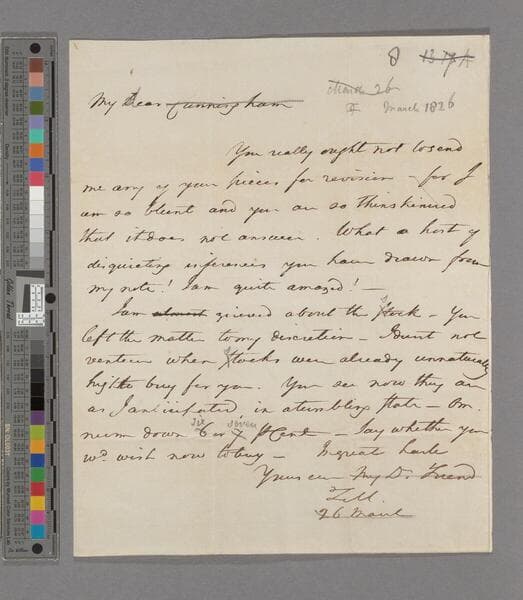 8 13 17 A
March 26
March 1826
My Dear Cunningham
You really ought not to send
me any of your pieces for revision – for I
am so blunt and you are so thinskinned
that it does not answer. What a host of
disquieting inferences you have drawn from
my note! I am quite amazed! –
I am almost grieved about the Stock – You
left the matter to my discretion – I durst not
venture when Stocks were already unnaturally
high to buy for you. You see now they are
as I anticipated, in a trembling state – Om
nium down 6 or 7 Six Seven P Cent – Say whether you
wd. wish now to buy – In great haste
Yours ever My Dr. Friend
26 March